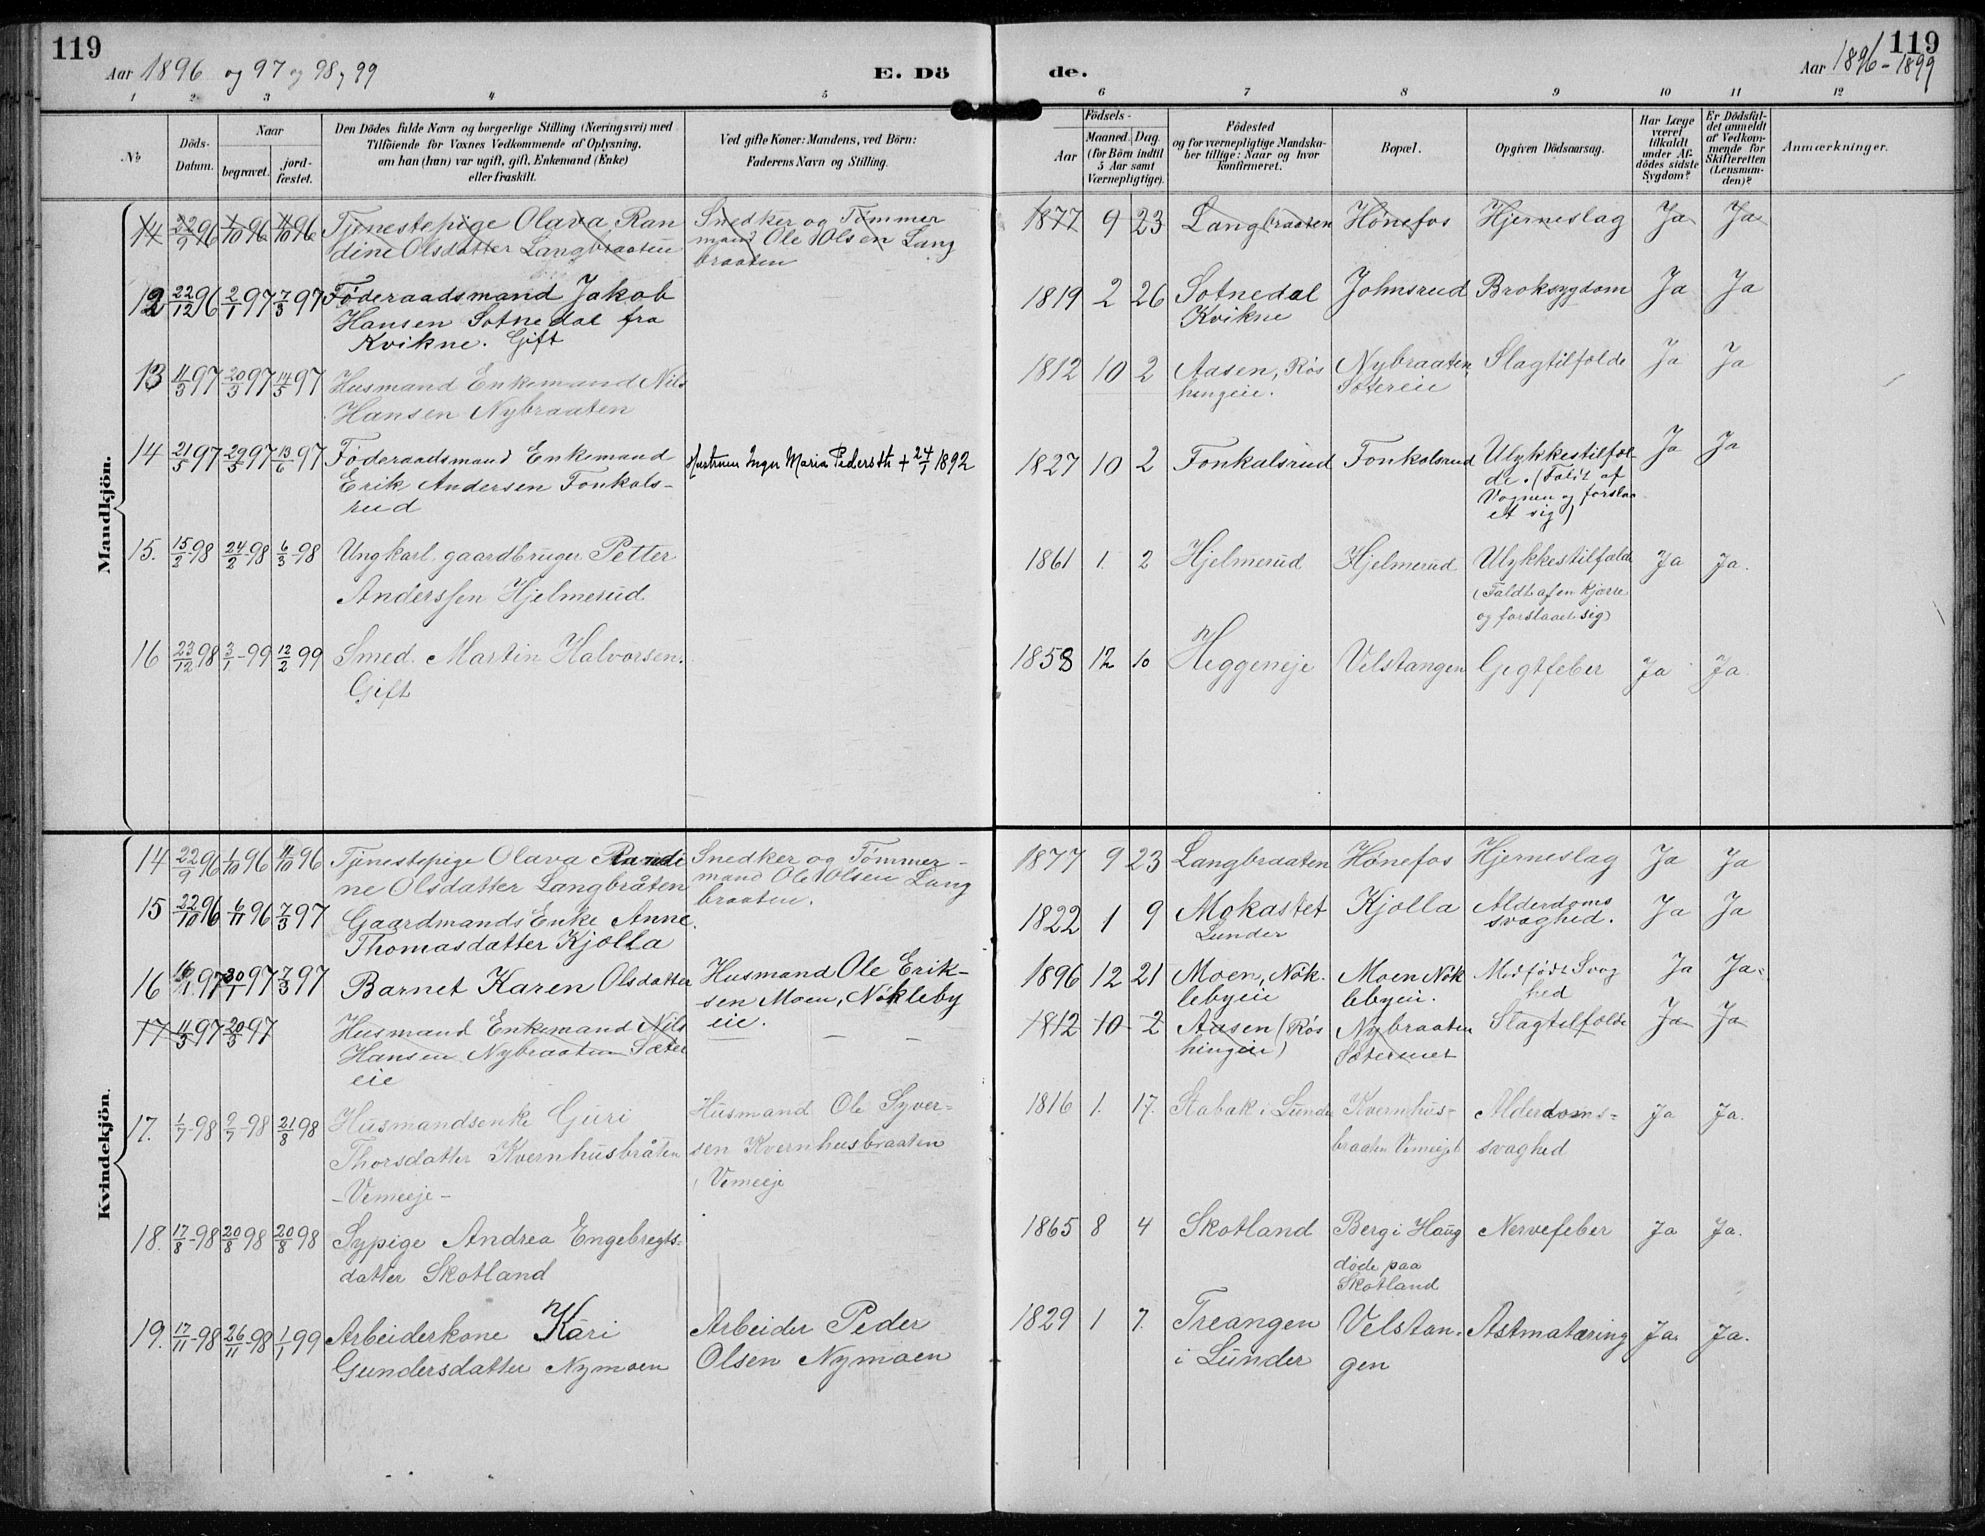 119
Aar 1896 og 97 og 98 og 99
E. Dö
de.
Aar 1896-1899
119
1 2 3 4 5 6 7 8 9 10 11 12
No
Döds-Datum.
Naar
begravet.
jord-fæstet.
Den Dödes fulde Navn og borgerlige Stilling (Næringsvei) med
Tilföiende for Voxnes Vedkommende af Oplysning,
om han (hun) var ugift, gift, Enkemand (Enke)
eller fraskilt.
Ved gifte Koner: Mandens, ved Börn:
Faderens Navn og Stilling.
Födsels-
Aar
Maaned. Dag.
(for Börn indtil
5 Aar samt
Værnepligtige).
Födested
og for værnepligtige Mandska-
ber tillige: Naar og hvor
konfirmeret.
Bopæl.
Opgiven Dödsaarsag.
Har Læge
været
tilkaldt
under Af-
dödes sidste
Sygdom?
Er Dödsfal-
det anmeldt
af Vedkom-
mende for
Skifteretten
(Lensman-
den)?
Anmærkninger.
Mandkjön.
14 22/9 96 1/10 96 11/10 96 Tjenestepige Olava Ran
dine Olsdatter Langbraaten
Snedker og Tømmer
mand Ole Olsen Lang
braaten
1877 9 23 Langbraaten Hønefos Hjerneslag Ja Ja
12 22/12 96 2/1 97 7/3 97 Føderaadsmand Jakob
Hansen Sotnedal fra
Kvikne. Gift
1819 2 26 Sotnedal
Kvikne
Johnsrud Broksygdom Ja Ja
13 11/3 97 20/3 97 14/5 97 Husmand Enkemand Nils
Hansen Nybraaten
1812 10 2 Aasen, Røs
hingeie.
Nybraaten
Sætereie
Slagtilfælde Ja Ja
14 21/5 97 29/5 97 13/6 97 Føderaadsmand Enkemand
Erik Andersen Fonkals-
rud
Hustruen Inger Maria Pedersdt + 24/1 1892
1827 10 2 Fonkalsrud Fonkalsrud Ulykkestilfæl
de. (Faldt af
Vognen og forslaa
et sig)
Ja Ja
15. 15/2-98 24/2 98 6/3-98 Ungkarl gaardbruger Petter
Anderssen Hjelmerud
1861 1. 2 Hjelmerud Hjelmerud Ulykkestilfælde
(Faldt af en Kjærre
og forslaaet sig)
Ja Ja.
16 23/12 98 3/1-99 12/2 99 Smed. Martin Halvorsen.
Gift
1858 12 10 Heggeneje Velstangen Gegtfeber Ja Ja.
Kvindekjön.
14 22/9 96 1/10 96 11/10 96 Tjenestepige Olava Randi
ne Olsdatter Langbråten
Snedker og Tømmer-
mand Ole Olsen Lang
braaten.
1877 9 23 Langbraaten Hønefos Hjerneslag Ja Ja
15 22/10 96 6/11 96 7/3 97 Gaardmands Enke Anne
Thomasdatter Kjolla
1822 1 9 Mokastet
Lunder
Kjolla Alderdoms
svaghed.
Ja Ja
16 16/1 97 30/1 97 7/3 97 Barnet Karen Olsdatter
Husmand Ole Erik-
sen Moen, Nøkleby
eie.
1896 12 21 Moen, Nøk-
lebyeie
Moen Nøk
lebyeie.
Medfødt Svag
hed
Ja Ja
17 11/3 97 20/3 97 Husmand Enkemand Nils
Hansen Nybraaten Sæter
eie
1812 10 2 Aasen (Røs
hingeie)
Nybraaten
Slagtilfælde Ja Ja
17. 1/7-98 9/7-98 21/8 98 Husmandsenke Guri
Thorsdatter Kvernhusbråten
-Vemeeje-
Husmand Ole Syver-
sen Kvernhusbraaten
Vemeeje
1816 1. 17. Stabak i Lunder Kvernhus-
braaten
Alderdoms-
svaghed
Ja Ja.
18. 17/8-98 20/8 98 20/8 98 Sypige Andrea Engebregts-
datter Skotland
1865 8 4 Skotland Berg i Haug
døde paa
Skotland
Nervefeber Ja Ja.
19. 17/11-98 26/11-98 1/1 99 Arbeiderkone Kari
Gundersdatter Nymoen
Arbeider Peder
Olsen Nymoen
1829 1 7. Treangen
i Lunder
Velstan-
gen
Astmatæring Ja. Ja.